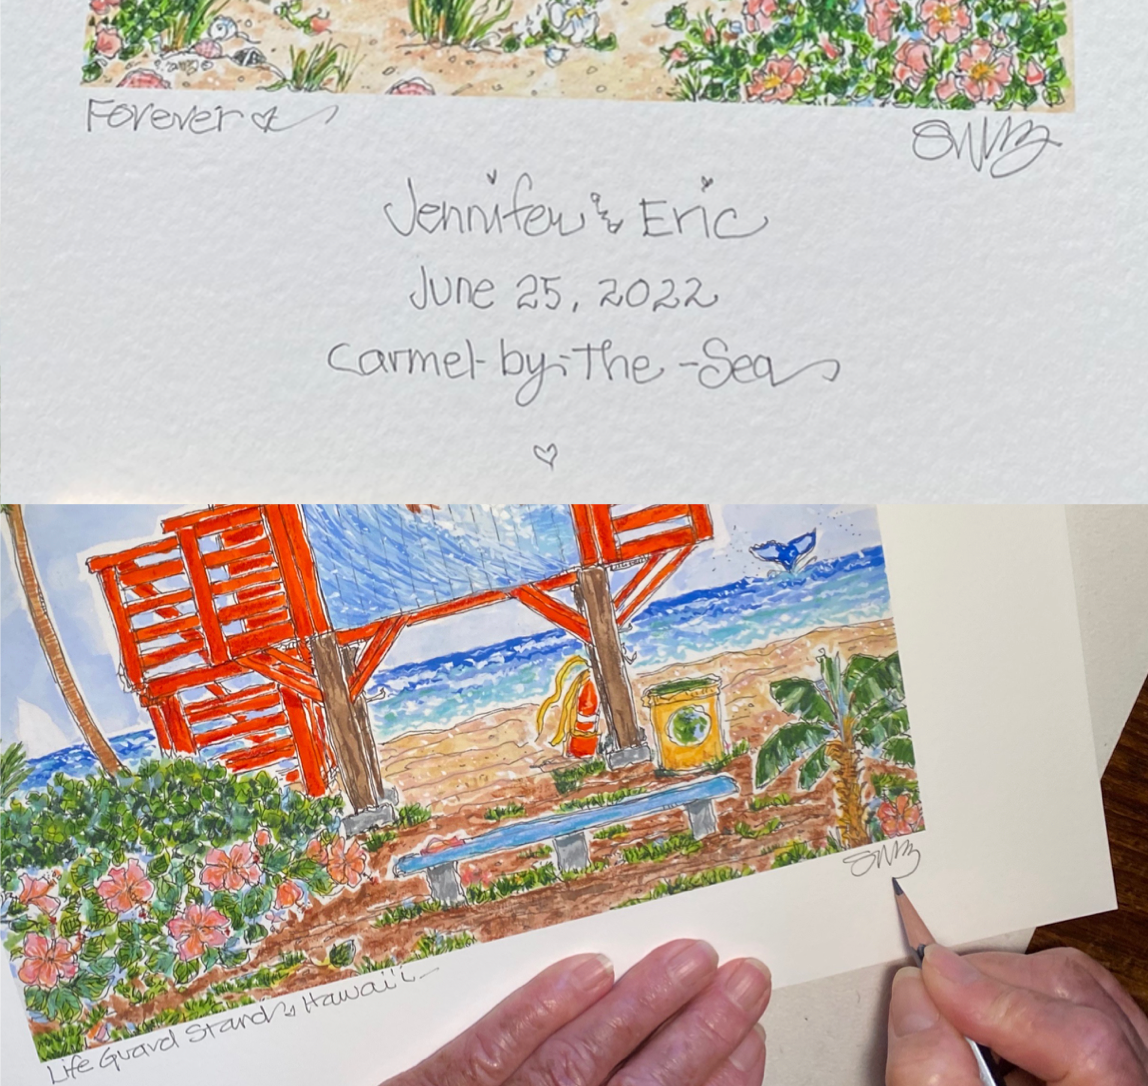 Forever
Jennifer & Eric
June 25, 2022
Carmel-by-The-Sea
Life Guard Stand, Hawai'i